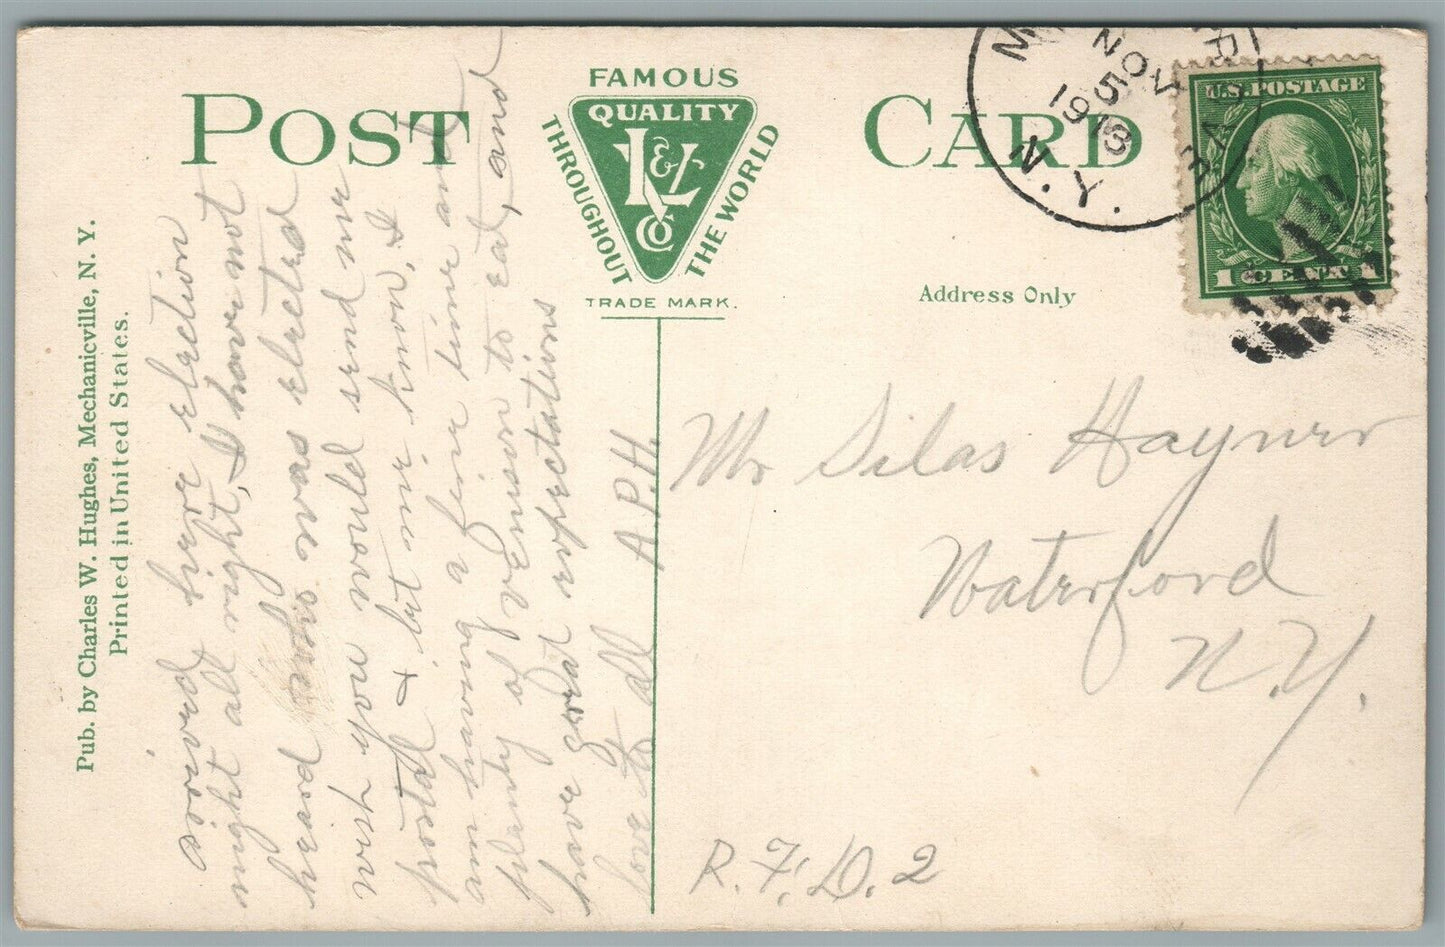 POST CARD
FAMOUS
QUALITY
THROUGHOUT
THE WORLD
V&L
Co
TRADE MARK.
NOV
5
1913
N.Y.
U.S. POSTAGE
1 CENT 1
Address Only
Pub. by Charles W. Hughes, Mechanicville, N. Y.
Printed in United States.
arrived here election
night all right, I have not
heard who was elected
wish you would send me
postal & let me know, I
am having a fine time and
plenty of venison to eat, and
have great expectations
love to all A.P.H.
Mr Silas Hayner
Waterford
N.Y.
R.F.D. 2